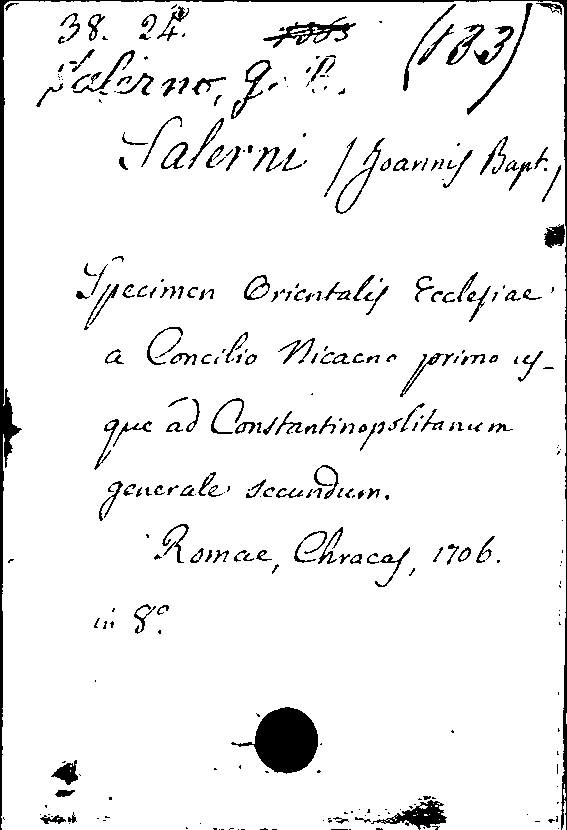 38. 24.
(133)
Salerno, G. B.
Salerni (Joannis Bapt.)
Specimen Orientalis Ecclesiae
a Concilio Nicaeno primo us-
que ad Constantinopolitanum
generale secundum.
Romae, Chracas, 1706.
in 8º.